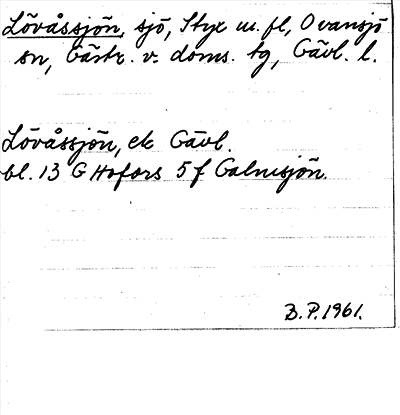 Lövåssjön, sjö, Styx m. fl, Ovansjö
sn, Gästr. v. doms. tg, Gävl. l.
Lövåssjön, ek Gävl.
bl. 13 G Hofors 5 f Galmsjön.
B.P. 1961.